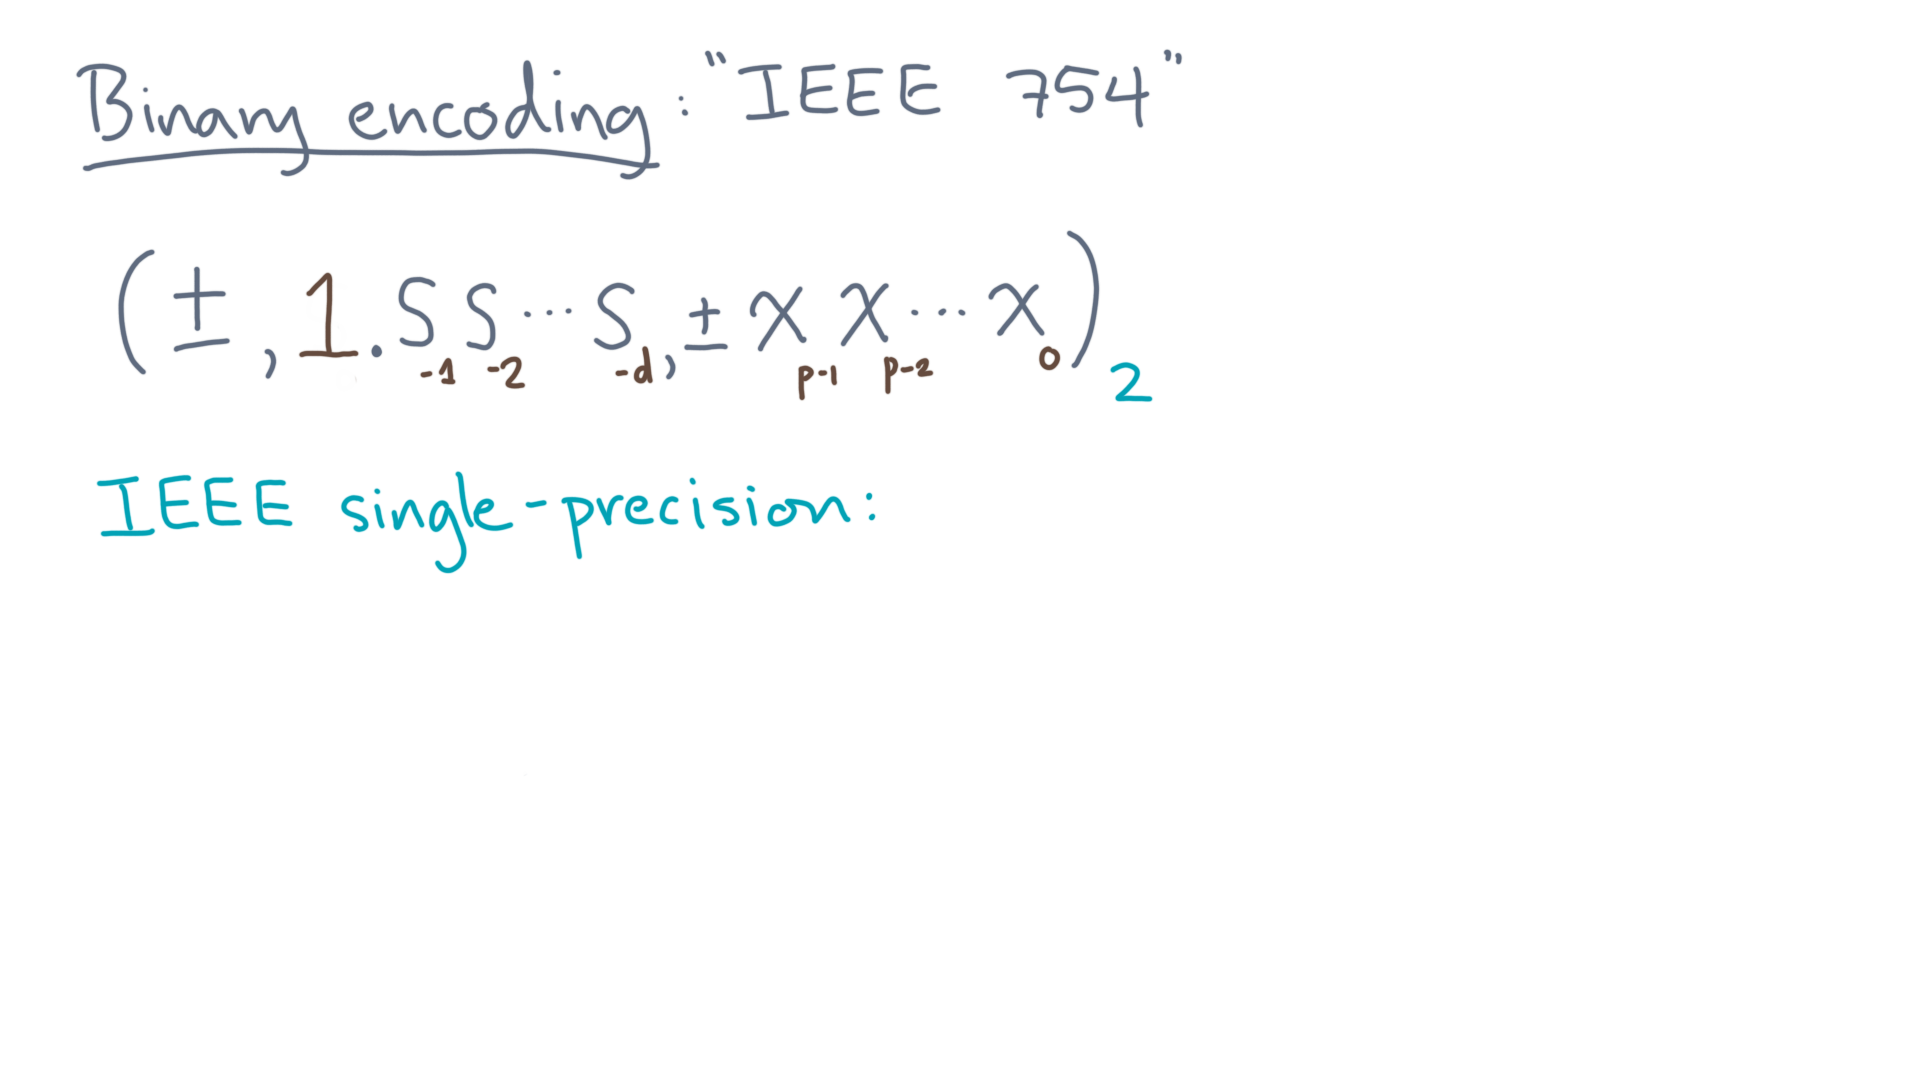 Binary encoding: "IEEE 754"
(±, 1.s₋₁s₋₂…s₋d, ±xₚ₋₁xₚ₋₂…x₀)₂
IEEE single-precision: